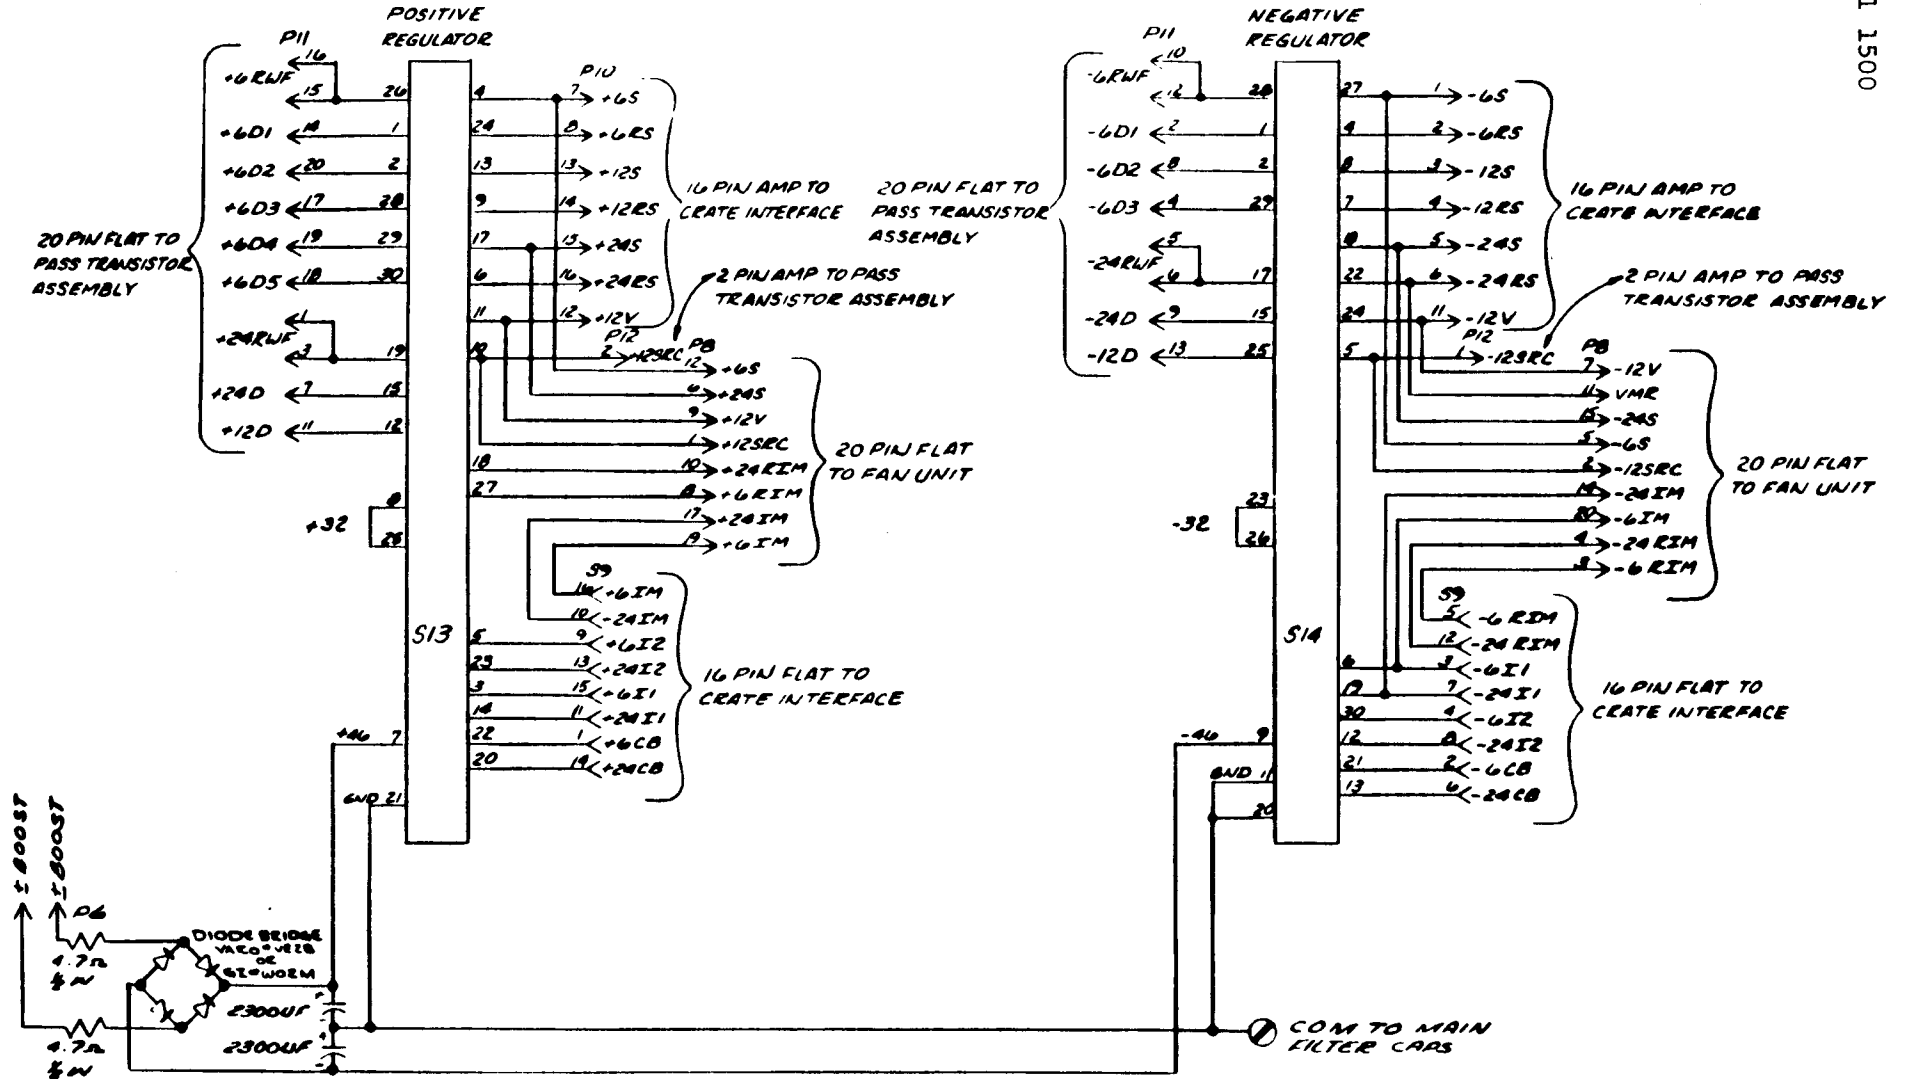 1 1500
POSITIVE
REGULATOR
P11
+6RWF
16
15
26
+6D1
14
1
+6D2
20
2
+6D3
17
28
+6D4
19
29
+6D5
18
30
+24RWF
1
3
19
+24D
7
15
+12D
11
12
20 PIN FLAT TO
PASS TRANSISTOR
ASSEMBLY
+32
8
25
S13
+46
7
GND
21
P10
4
7
+6S
24
8
+6RS
13
13
+12S
9
14
+12RS
17
15
+24S
6
16
+24RS
11
12
+12V
16 PIN AMP TO
CRATE INTERFACE
2 PIN AMP TO PASS
TRANSISTOR ASSEMBLY
P12
10
2
+12SRC
P8
12
+6S
6
+24S
9
+12V
1
+12SRC
18
10
+24RIM
27
8
+6RIM
17
+24IM
19
+6IM
20 PIN FLAT
TO FAN UNIT
S9
16
+6IM
10
-24IM
5
9
+6I2
23
13
+24I2
3
15
+6I1
14
11
+24I1
22
1
+6CB
20
14
+24CB
16 PIN FLAT TO
CRATE INTERFACE
NEGATIVE
REGULATOR
P11
-6RWF
10
12
28
-6D1
2
1
-6D2
8
2
-6D3
4
29
-24RWF
5
6
17
-24D
9
15
-12D
13
25
20 PIN FLAT TO
PASS TRANSISTOR
ASSEMBLY
-32
23
26
S14
-46
9
GND
11
20
27
1
-6S
4
2
-6RS
8
3
-12S
7
4
-12RS
18
5
-24S
22
6
-24RS
24
11
-12V
16 PIN AMP TO
CRATE INTERFACE
2 PIN AMP TO PASS
TRANSISTOR ASSEMBLY
P12
5
1
-12SRC
P8
7
-12V
11
VMR
15
-24S
5
-6S
2
-12SRC
14
-24IM
20
-6IM
4
-24RIM
3
-6RIM
20 PIN FLAT
TO FAN UNIT
S9
5
-6RIM
12
-24RIM
6
3
-6I1
19
7
-24I1
30
4
-6I2
12
8
-24I2
21
2
-6CB
13
6
-24CB
16 PIN FLAT TO
CRATE INTERFACE
±BOOST
±BOOST
P6
4.7Ω
4.7Ω
DIODE BRIDGE
OR
2300UF
+
-
2300UF
+
-
COM TO MAIN
FILTER CAPS